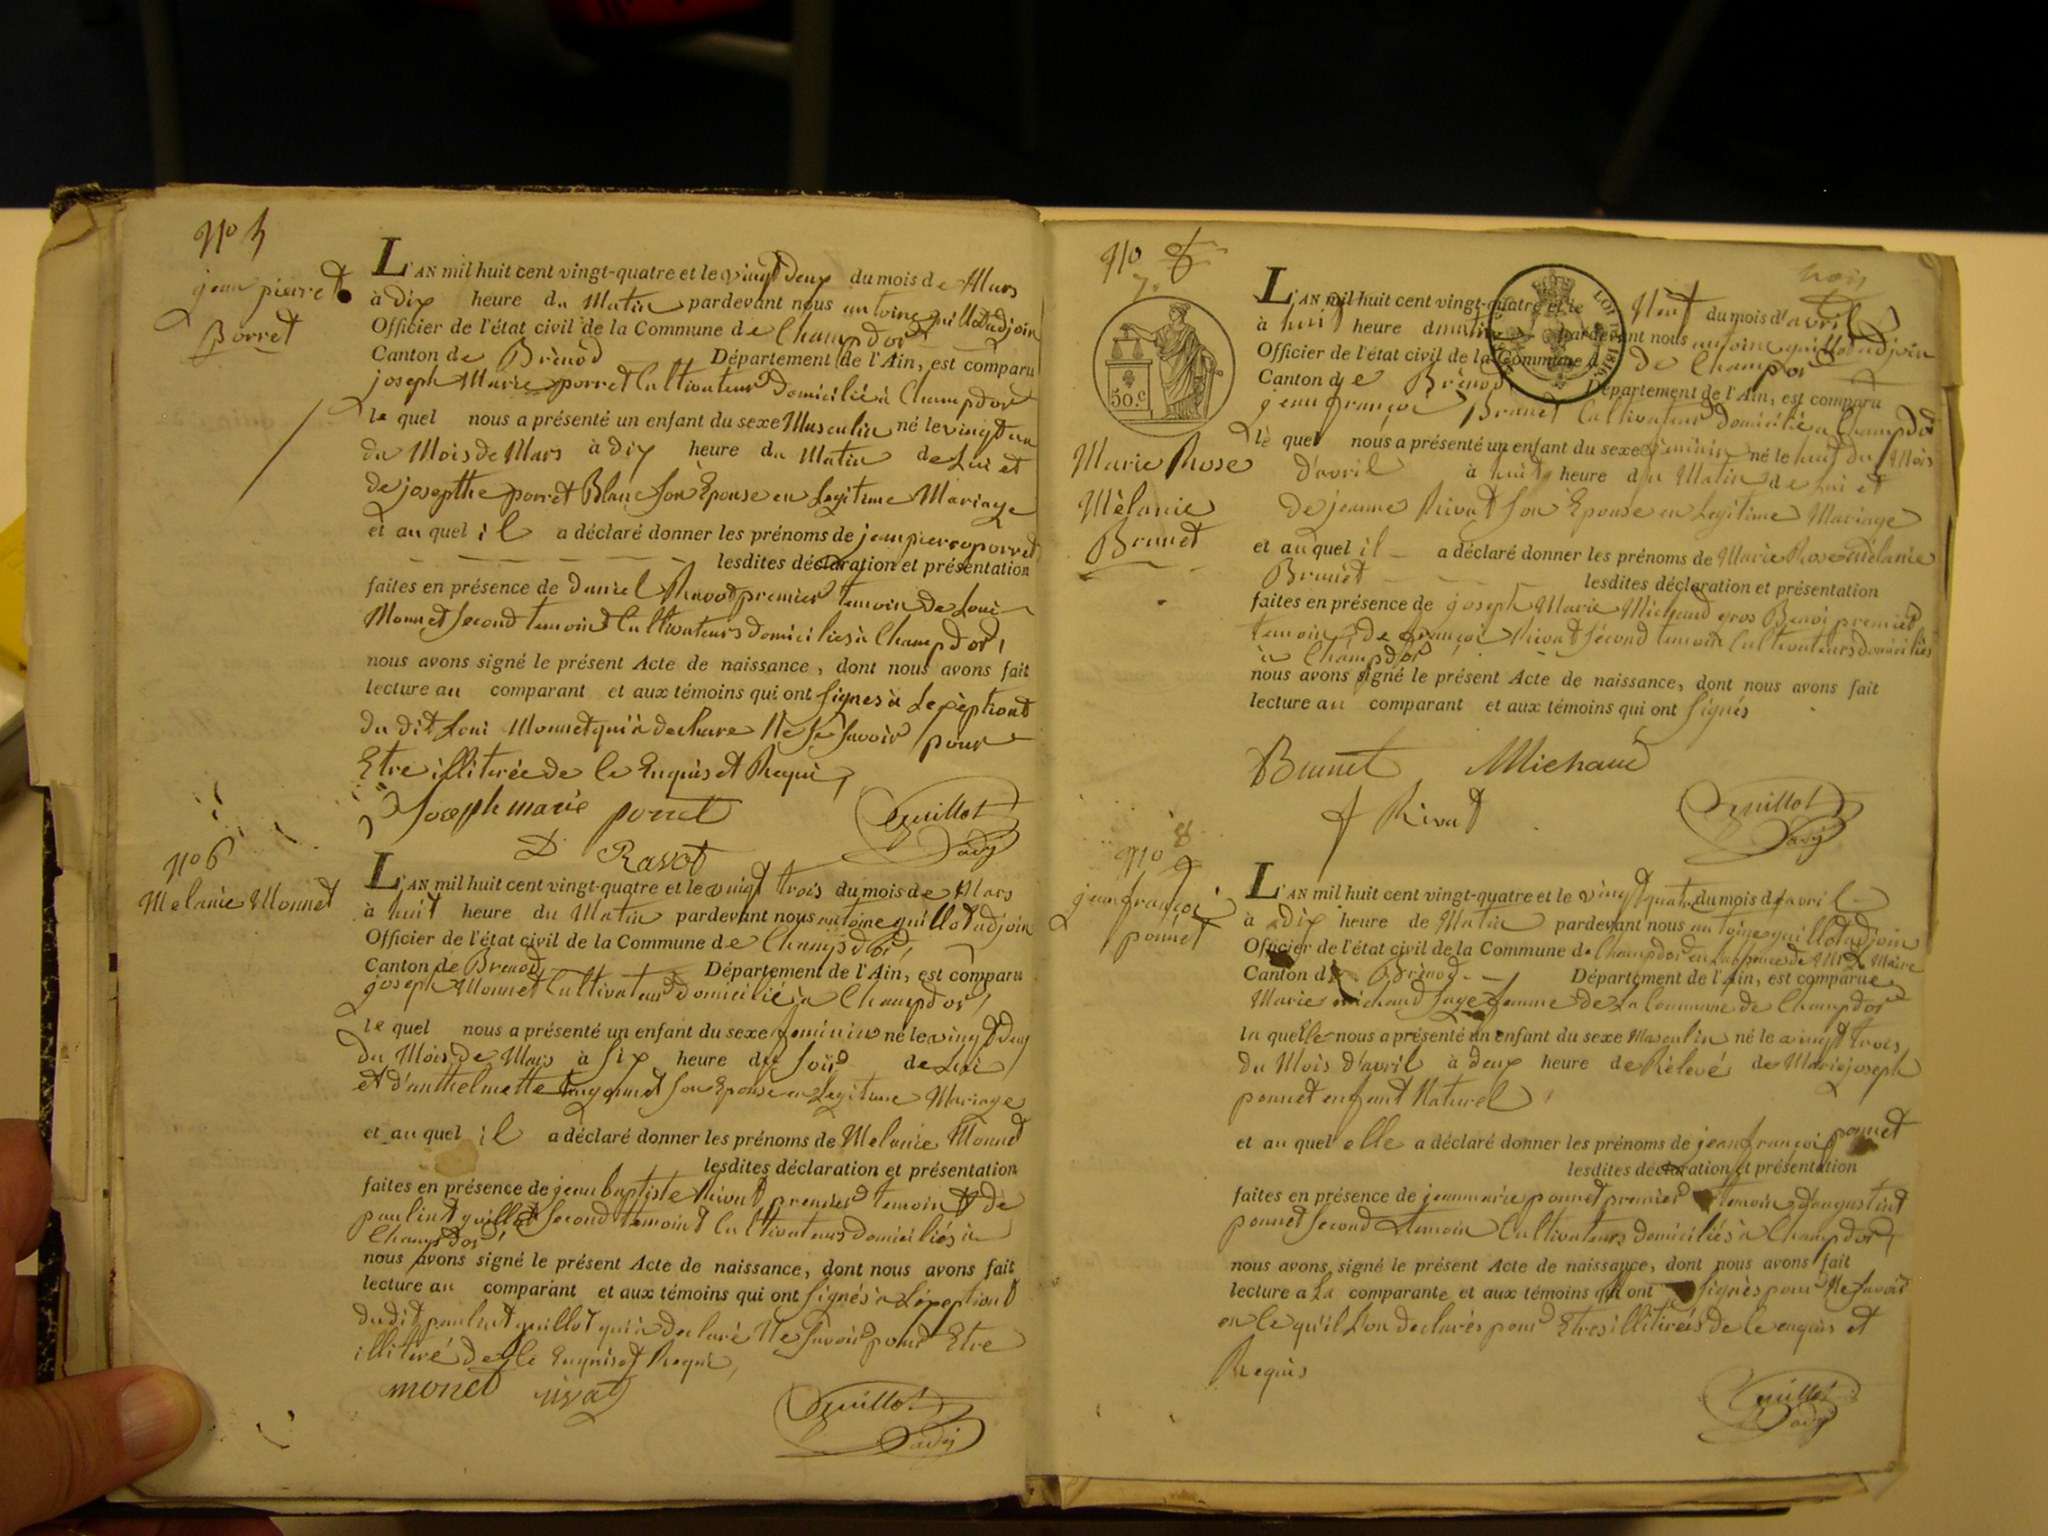 No 5
jean pierre
Porret
L'AN mil huit cent vingt-quatre et le vingt deux du mois de Mars
à dix heure du Matin pardevant nous antoine guillot adjoin
Officier de l'état civil de la Commune de Champdor
Canton de Brénod Département de l'Ain, est comparu
joseph Marie porret Cultivateur domicilié à Champdor
le quel nous a présenté un enfant du sexe Masculin né le vingt un
du Mois de Mars à dix heure du Matin de Lui et
de josepthe porret Blanc son Epouse en Legitime Mariage
et au quel il a déclaré donner les prénoms de jean pierre porret
lesdites déclaration et présentation
faites en présence de daniel Ravot premier temoin de Loui
Monnet second temoint Cultivateurs domiciliés à Champdor,
nous avons signé le présent Acte de naissance, dont nous avons fait
lecture au comparant et aux témoins qui ont signés à Lexeptiont
du dit Loui Monnet qui à declaré Ne se savoir pour
Etre illiterée de le Enquis et Requi,
Joseph marie porret
D Ravot
Guillot
adj
No 6
Melanie Monnet
L'AN mil huit cent vingt-quatre et le vingt trois du mois de Mars
à huit heure du Matin pardevant nous antoine guillot adjoin
Officier de l'état civil de la Commune de Champdor,
Canton de Brenod Département de l'Ain, est comparu
joseph Monnet Cultivateur domicilié à Champdor,
le quel nous a présenté un enfant du sexe feminin né le vingt deux
du Mois de Mars à Six heure du Soir de Lui
et d'anthelmette son Epouse en Legitime Mariage
et au quel il a déclaré donner les prénoms de Melanie Monnet
lesdites déclaration et présentation
faites en présence de jean baptiste Rivat premier temoint de
paulint guillot second temoint Cultivateurs domiciliés à
Champdor,
nous avons signé le présent Acte de naissance, dont nous avons fait
lecture au comparant et aux témoins qui ont signés à Lexeptiont
du dit paulint guillot qui à declaré Ne savoir pour Etre
illitéré de le Enquis et Requi,
monet rivat
Guillot
adj
No 8
7.
trois
50.c
LOI 1816
Marie Rose
Mélanie
Brunet
L'AN mil huit cent vingt-quatre et le Neuf du mois d'avril
à huit heure du matin pardevant nous antoine guillot adjoin
Officier de l'état civil de la Commune de Champdor
Canton de Brénod Département de l'Ain, est comparu
jean françoi Brunet Cultivateur domicilié à Champdor
le quel nous a présenté un enfant du sexe feminin né le huit du Mois
d'avril à huit heure du Matin de Lui et
de jeanne Rivat son Epouse en Legitime Mariage
et au quel il a déclaré donner les prénoms de Marie Rose Mélanie
Brunet lesdites déclaration et présentation
faites en présence de joseph Marie Michaud gros Benoi premier
temoin, de françoi Rivat sécond temoin Cultivateurs domiciliés
à Champdor
nous avons signé le présent Acte de naissance, dont nous avons fait
lecture au comparant et aux témoins qui ont signés
Brunet Michaud
f Rivat
Guillot
adj
8
No 9
jean françoi
ponnet
L'AN mil huit cent vingt-quatre et le vingt quatre du mois d'avril
à dix heure de Matin pardevant nous antoine guillot adjoin
Officier de l'état civil de la Commune de Champdor en Labsence de Mr Le Maire
Canton de Brénod Département de l'Ain, est comparue
Marie michaud sage femme de La Commune de Champdor
la quelle nous a présenté un enfant du sexe Masculin né le vingt trois
du Mois d'avril à deux heure de Rélevé de Marie joseph
ponnet enfant Naturel,
et au quel elle a déclaré donner les prénoms de jean françoi ponnet
lesdites déclaration et présentation
faites en présence de jean marie ponnet premier temoin d'augustint
ponnet second temoin Cultivateurs domiciliés à Champdor,
nous avons signé le présent Acte de naissance, dont nous avons fait
lecture a La comparante et aux témoins qui ont signés pour Ne savoir
en le qu'il L'on declarés pour Etres illitérés de le enquis et
Requis
Guillot
adj